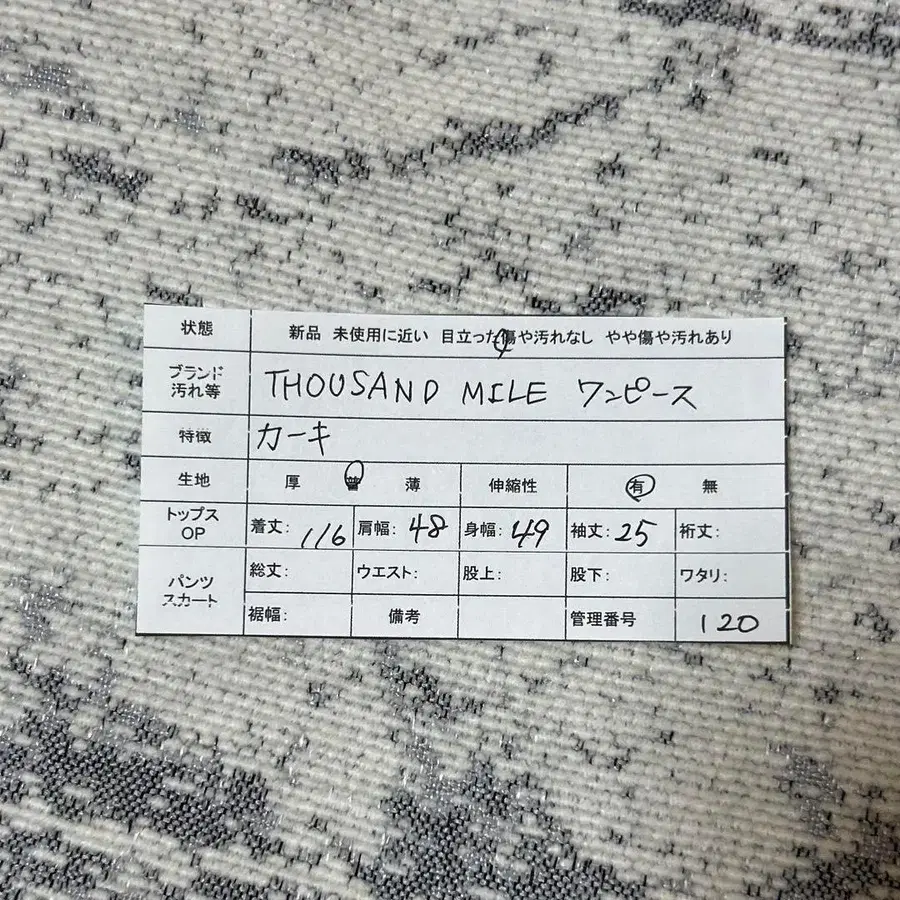 状態 新品 未使用に近い 目立った傷や汚れなし やや傷や汚れあり
ブランド
汚れ等 THOUSAND MILE ワンピース
特徴 カーキ
生地 厚 普 薄 伸縮性 有 無
トップス
OP 着丈: 116 肩幅: 48 身幅: 49 袖丈: 25 裄丈:
パンツ
スカート 総丈: ウエスト: 股上: 股下: ワタリ:
裾幅: 備考 管理番号 120